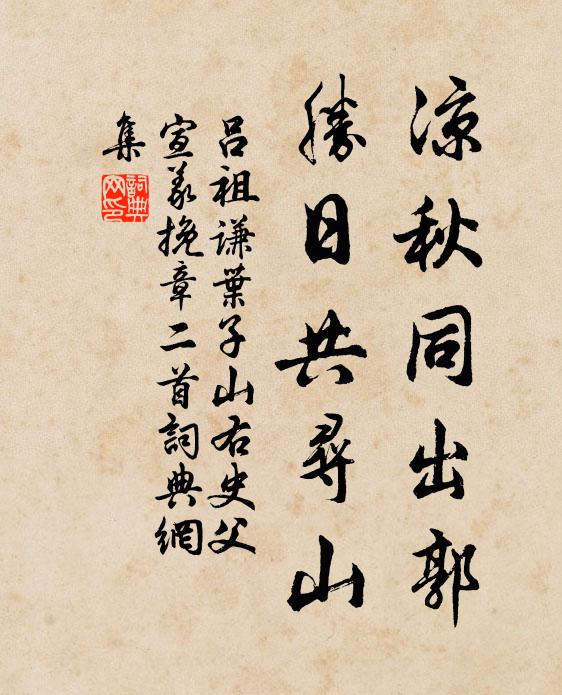 涼秋同出郭
勝日共尋山
呂祖謙葉子山右史父
宣義挽章二首詞典網
集
詞典
网印